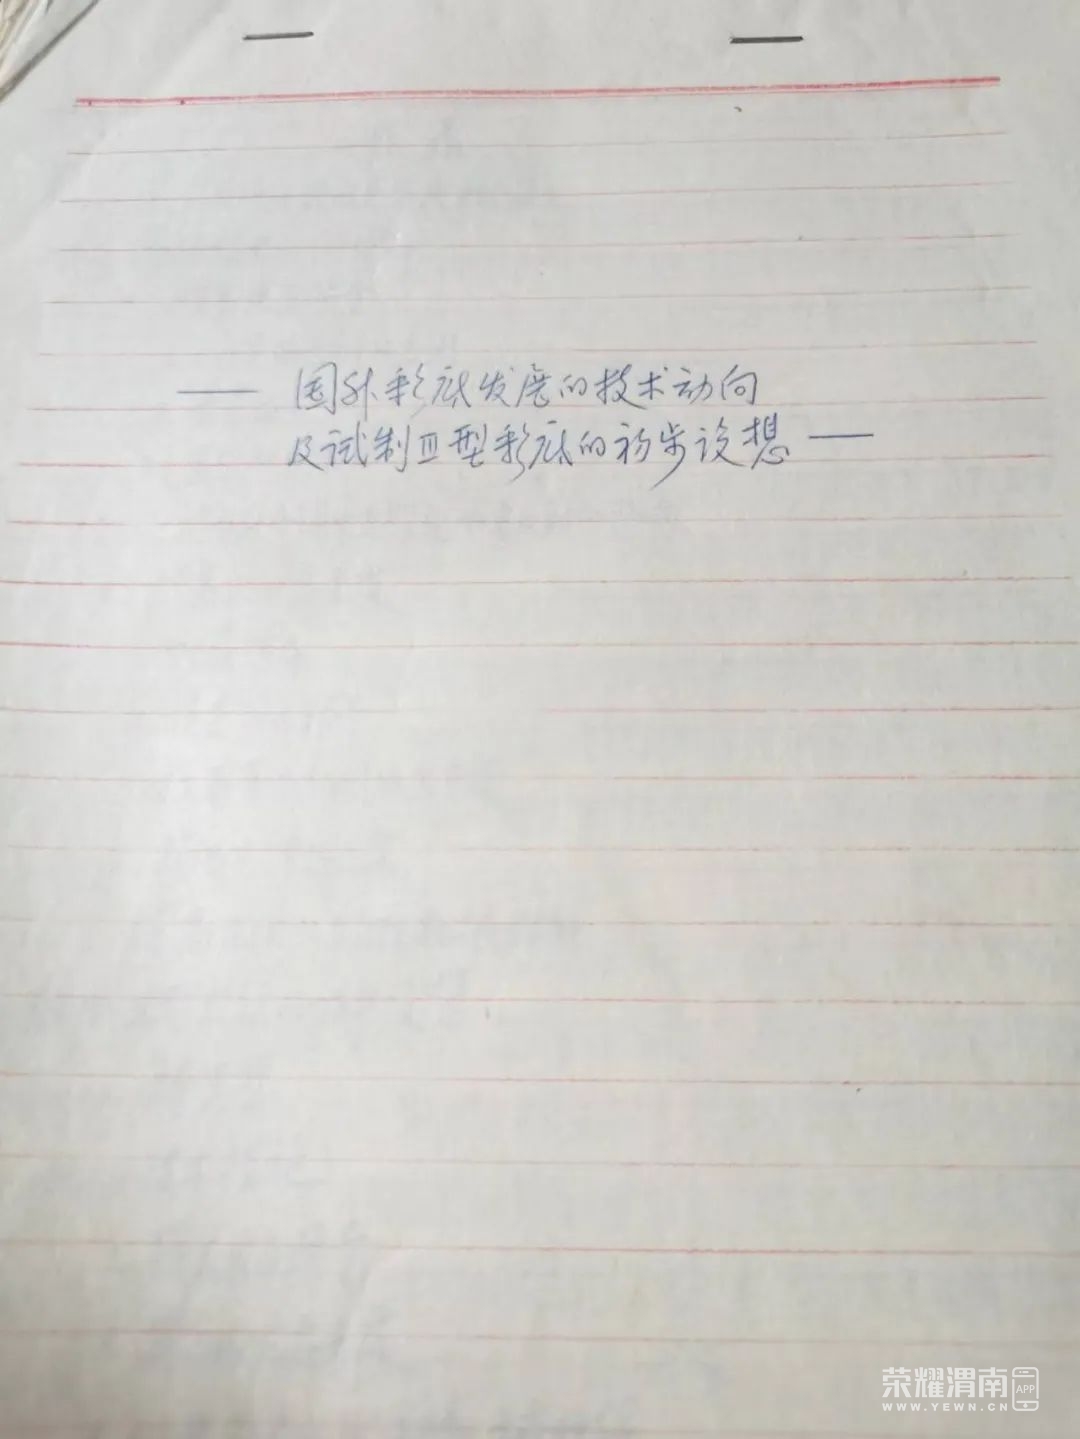 —— 国外彩底发展的技术动向
及试制Ⅲ型彩底的初步设想 ——
荣耀渭南
APP
WWW.YEWN.CN